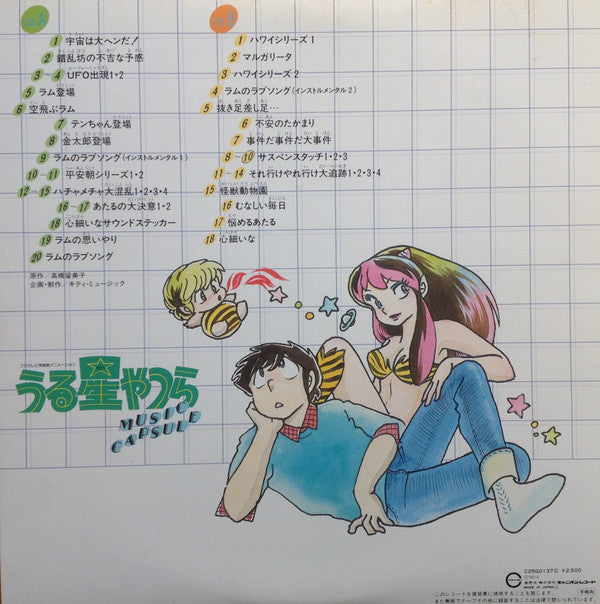 1 宇宙は大ヘンだ!
2 錯乱坊の不吉な予感
3~4 UFO出現1・2
5 ラム登場
6 空飛ぶラム
7 テンちゃん登場
8 金太郎登場
9 ラムのラブソング(インストルメンタル1)
10~11 平安朝シリーズ1・2
12~15 ハチャメチャ大混乱1・2・3・4
16~17 あたるの大決意1・2
18 心細いなサウンドステッカー
19 ラムの思いやり
20 ラムのラブソング
原作/高橋留美子
企画・制作/キティ・ミュージック
1 ハワイシリーズ1
2 マルガリータ
3 ハワイシリーズ2
4 ラムのラブソング(インストルメンタル2)
5 抜き足差し足…
6 不安のたかまり
7 事件だ事件だ大事件
8~10 サスペンスタッチ1・2・3
11~14 それ行けやれ行け大追跡1・2・3・4
15 怪獣動物園
16 むなしい毎日
17 悩めるあたる
18 心細いな
フジテレビ系放映アニメーション
うる星やつら
MUSIC
CAPSULE
C25G0137C ¥2,500
発売元/株式会社キャニオンレコード
MADE IN JAPAN
このレコードを賃貸業に使用することを禁じます。
また無断でテープその他に録音することは法律で禁じられています。